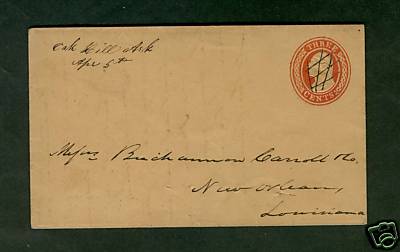 Oak Hill Ark
Apr 5th
THREE
CENTS
Messrs Buchannon Carroll & Co.
New Orleans,
Louisiana